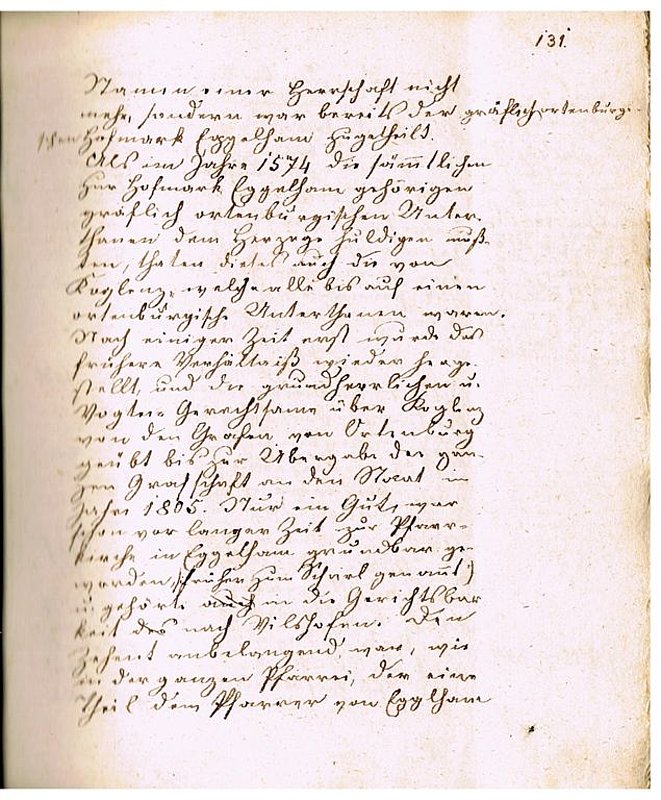 131.
Namen einer Herrschaft nicht
mehr, sondern war bereits der gräflich ortenburgi-
schen Hofmark Eggelham zugetheilt.
Als im Jahre 1574 die sämmtlichen
zur Hofmark Eggelham gehörigen
gräflich ortenburgischen Unter-
thanen dem Herzoge huldigen muß-
ten, thaten dieses auch die von
Koglenz, welche alle bis auf einen
ortenburgische Unterthanen waren.
Nach einiger Zeit erst wurde das
frühere Verhältniß wieder herge-
stellt, und die grundherrlichen u.
Vogtei- Gerechtsame über Koglenz
von den Grafen von Ortenburg
geübt bis zur Übergabe der gan-
zen Grafschaft an den Staat im
Jahre 1805. Nur ein Gut, war
schon vor langer Zeit zur Pfarr-
kirche in Eggelham grundbar ge-
worden, (früher zum Schärl genannt)
u. gehörte auch in die Gerichtsbar
keit des nach Vilshofen. Den
Zehent anbelangend, war, wie
in der ganzen Pfarrei, der eine
Theil dem Pfarrer von Egglham